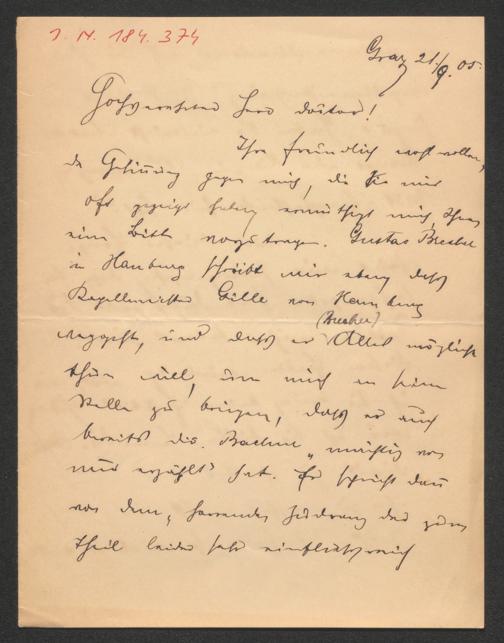 I. N. 184.374
Graz 21./9. 05.
Hochverehrter Herr Doktor!
Ihre freundlich wohlwollende
Gesinnung gegen mich, die Sie mir
oft gezeigt haben, ermuthigt mich, Ihnen
eine Bitte vorzutragen. Gustav Brecher
in Hamburg schreibt mir eben, daß
Kapellmeister Gille von Hamburg
weggeht, und daß er (Brecher) Alles mögliche
thun will, um mich an seine
Stelle zu bringen, daß er auch
bereits dir. Bachur „mächtig von
mir erzählt" hat. Er schreibt dann
von dem, Zudrang der zum
Theil leider sehr einflußreich